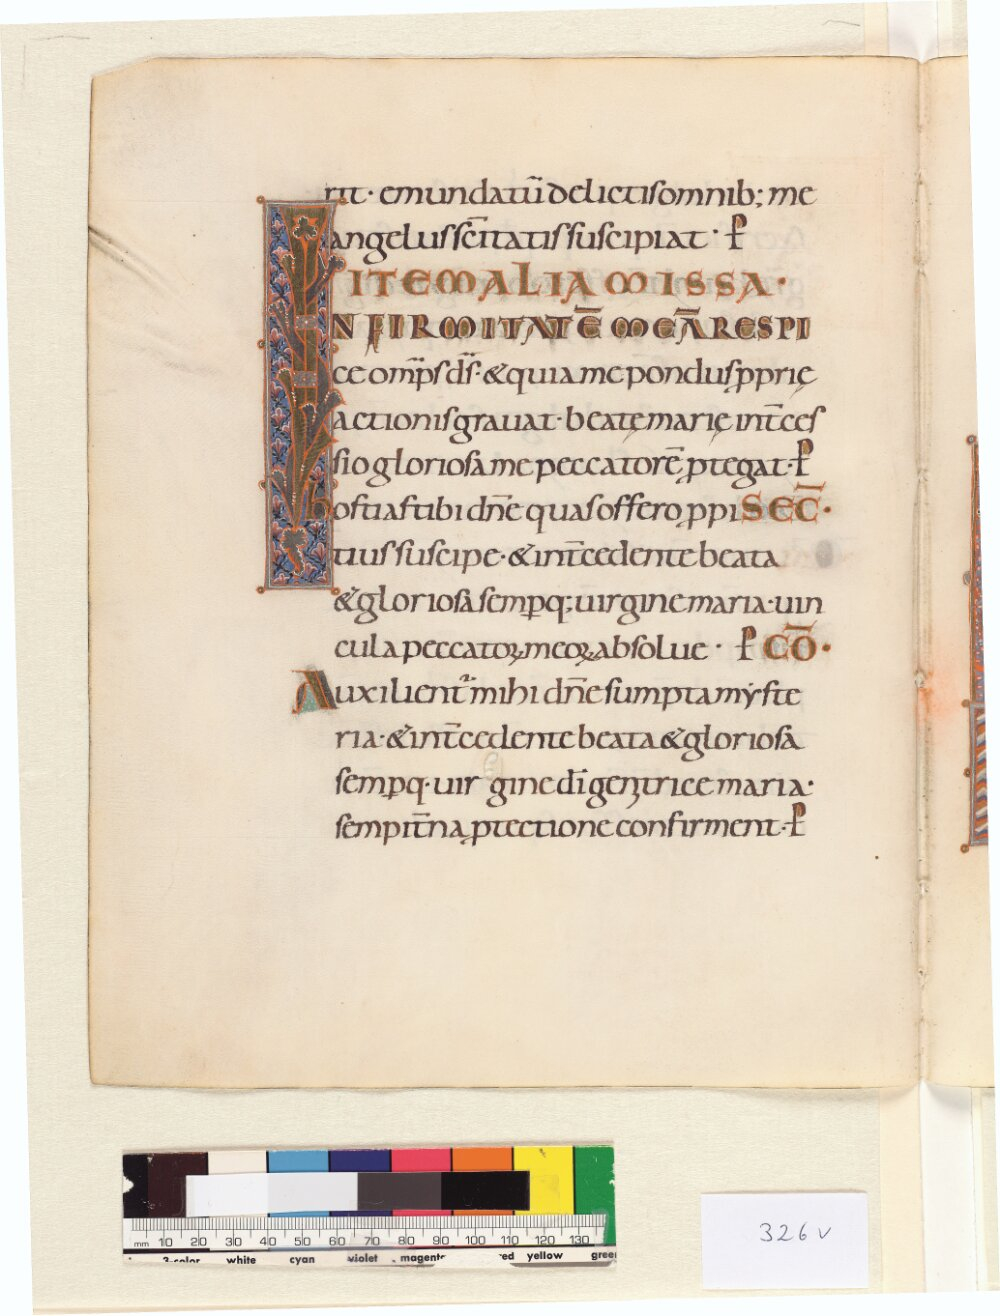 rit· emundatū delictis omnib; me
angelus scītatis suscipiat· P̄
ITEM ALIA MISSA·
INFIRMITATĒ MEĀ RESPI
ce om̄ps d̄s· & quia me pondus ꝓprię
actionis grauat· beatę marię int̄ces
sio gloriosa me peccatorē ꝓtegat· P̄
hostias tibi dn̄e quas offero ꝓpi SEC̄·
tius suscipe· & int̄cedente beata
& gloriosa semꝑq; uirgine maria· uin
cula peccatoꝝ meoꝝ absolue· P̄ CŌ·
Auxilient᷑ mihi dn̄e sumpta mẏste
ria· & int̄cedente beata & gloriosa
semꝑq· uirgine dī genetrice maria·
sempit̄na ꝓtectione confirment· P̄
mm 10 20 30 40 50 60 70 80 90 100 110 120 130
3-color white cyan violet magenta red yellow green
326v